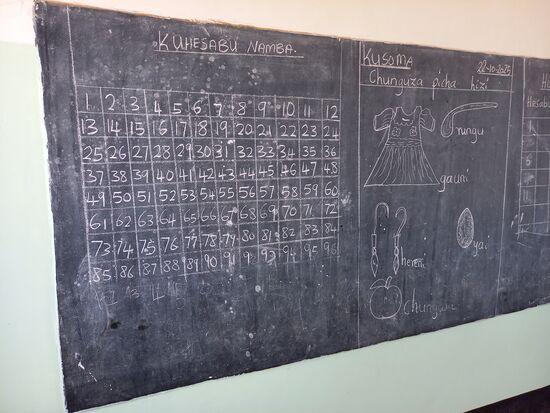 KUHESABU NAMBA.
1 2 3 4 5 6 7 8 9 10 11 12
13 14 15 16 17 18 19 20 21 22 23 24
25 26 27 28 29 30 31 32 33 34 35 36
37 38 39 40 41 42 43 44 45 46 47 48
49 50 51 52 53 54 55 56 57 58 59 60
61 62 63 64 65 66 67 68 69 70 71 72
73 74 75 76 77 78 79 80 81 82 83 84
85 86 87 88 89 90 91 92 93 94 95 96
KUSOMA
22-10-2025
Chunguza picha hizi
rungu
gauni
hereni
yai
Chungwa
Hesabu